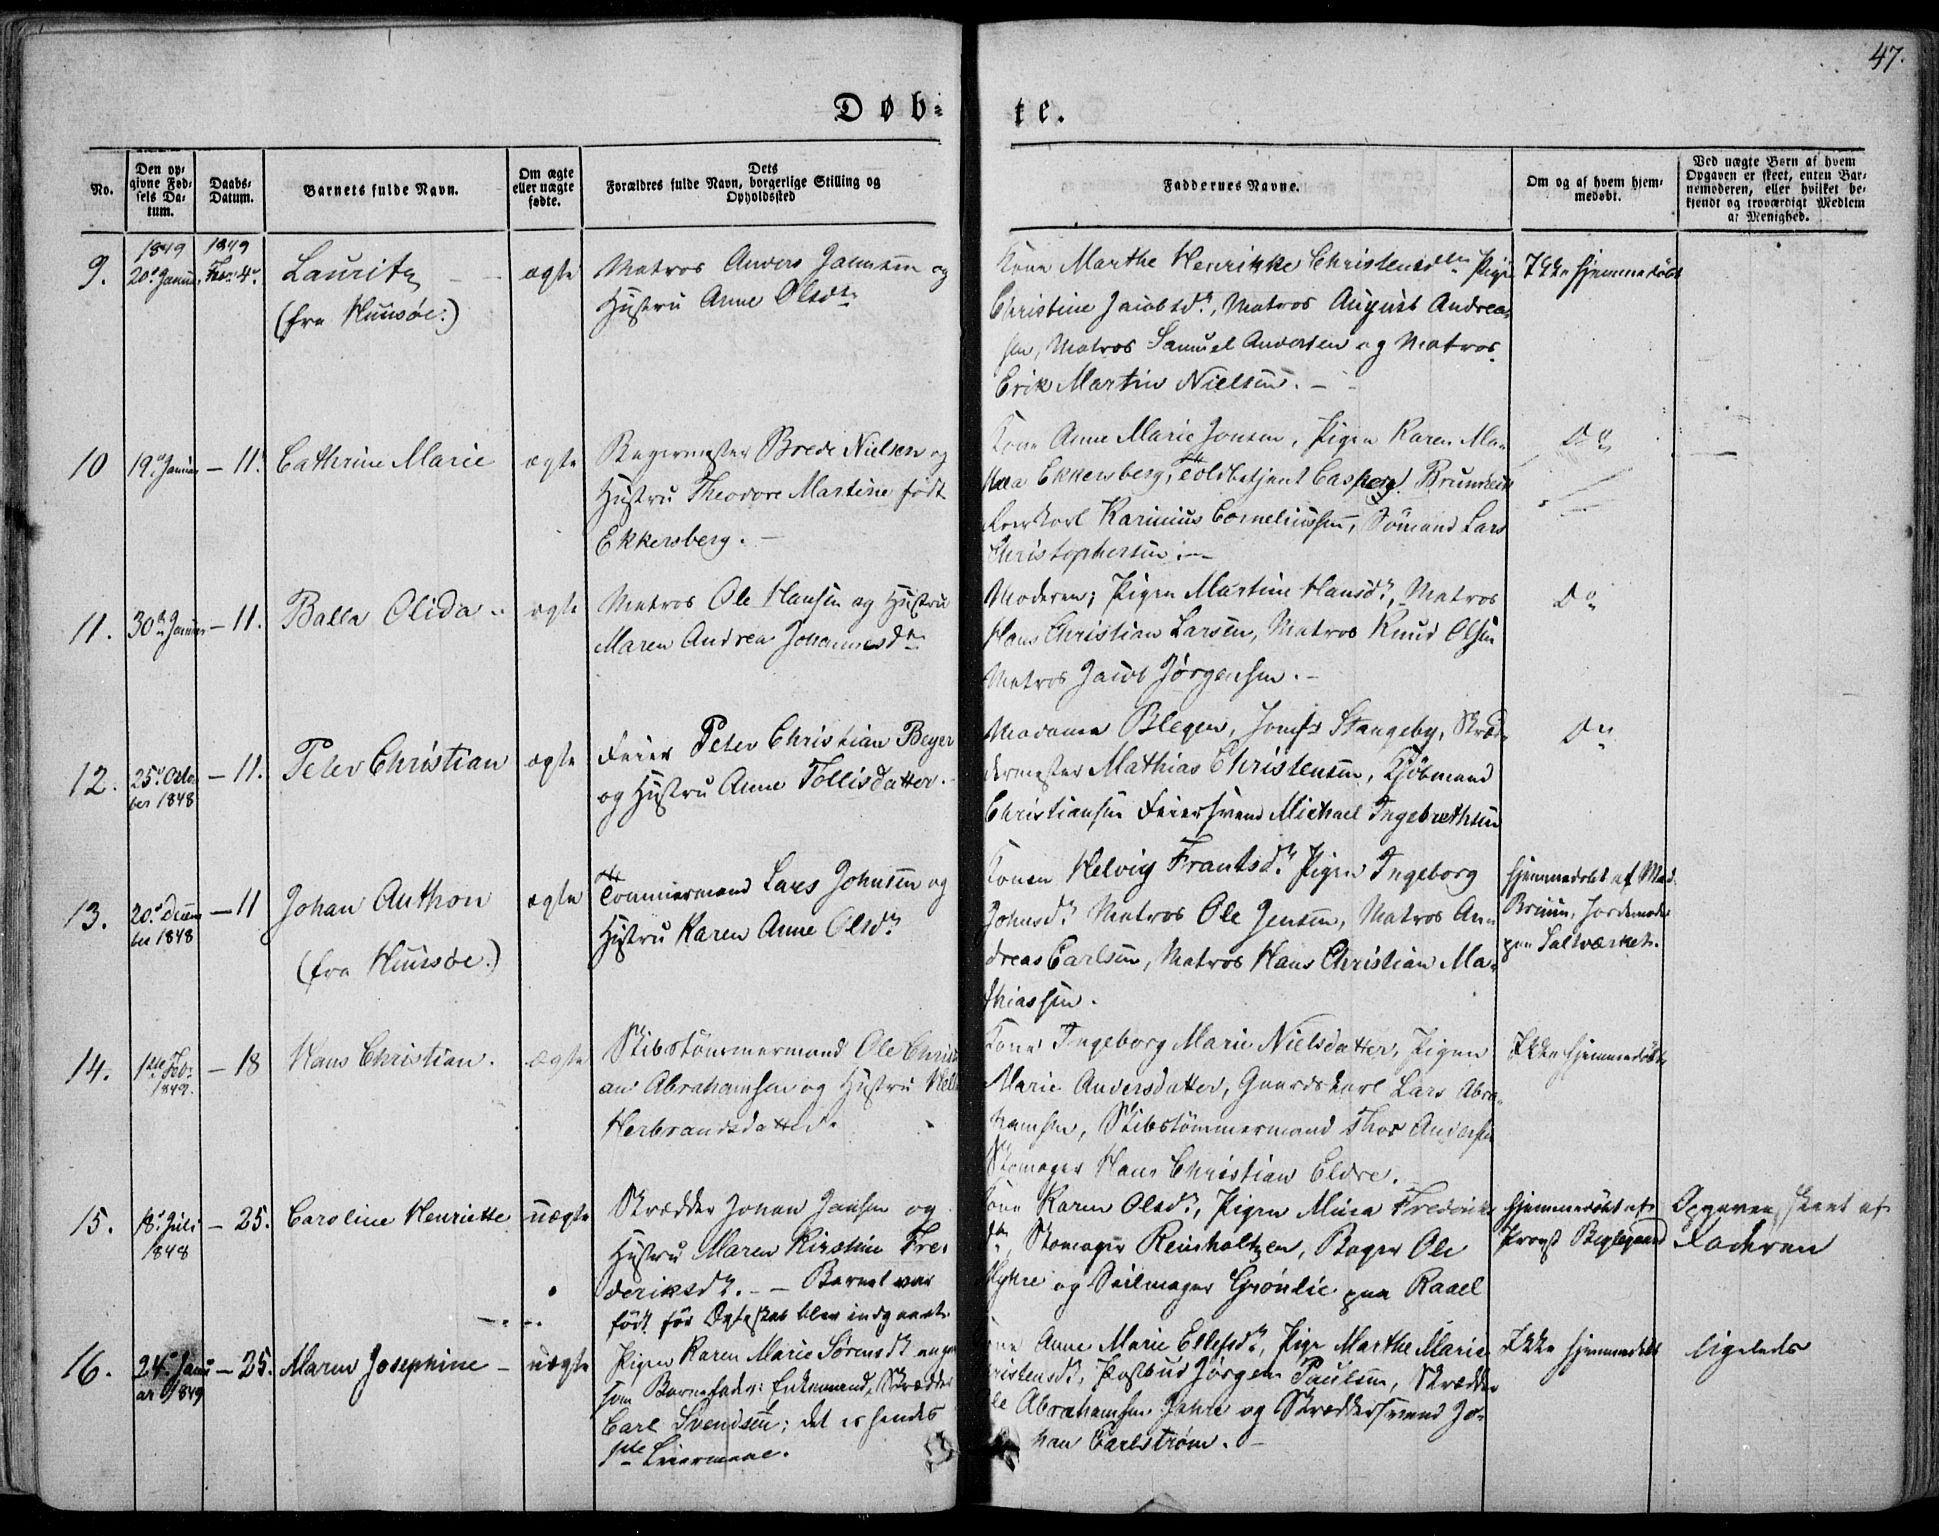 47.
Døb-
te.
No.
Den op-
givne Fød-
sels Da-
tum.
Daabs-
Datum.
Barnets fulde Navn.
Om ægte
eller uægte
fødte.
Dets
Forældres fulde Navn, borgerlige Stilling og
Opholdssted
Faddernes Navne.
Om og af hvem hjem-
medøbt.
Ved uægte Børn af hvem
Opgaven er skeet, enten Bar-
nemoderen, eller hvilket be-
kjendt og troværdigt Medlem
af Menighed.
1849 1849
9. 20de Januar Febr. 4de
Lauritz
(fra Huusøe:)
ægte
Matros Anders Jannsen og
Hustru Anne Olsdtr
Kone Marthe Henrikke Christensdtr Pige
Christine Jacobsdr, Matros August Andrea-
sen, Matros Samuel Andersen og Matros
Erik Martin Nielsen. –
Ikke hjemmedøbt
10 19de Januar – 11.
Cathrine Marie
ægte
Bagermester Brede Nielsen og
Hustru Theodore Martine født
Ekkersberg. –
Kone Anne Marie Jonsen, Pigen Karen Ma-
thea Ekkersberg, Toldbetjent Casper
Karinius Corneliussen, Sömand Lars
Christophersen. –
Do
11. 30de Januar – 11.
Balla Olida
ægte
Matros Ole Hansen og Hustru
Maren Andrea Johannesdtr
Moderen; Pigen Martine Hansdr, Matros
Hans Christian Larsen, Matros Knud Olsen
Matros Jacob Jørgensen. –
Do
12. 25de Octo-
ber 1848
– 11.
Peter Christian
ægte
Feier Peter Christian Beyer
og Hustru Anne Tollisdatter.
Madame Blegen, Jomfr Stangeby, Skræd-
dermester Mathias Christensen, Kjöbmand
Christiansen Feiersvend Michael Ingebrethsen
Do
13. 20de Decem
ber 1848
– 11
Johan Anthon
(fra Huusøe.)
ægte
Tømmermand Lars Johnsen og
Hustru Karen Anne Olsdr
Konen Helvig Frantsdr Pigen Ingeborg
Johnsdr Matros Ole Jensen, Matros An-
dreas Carlsen, Matros Hans Christian Ma-
thiassen.
hjemmedøbt af Mad.
Bruun, Jordemoder
paa Saltværket.
14. 1ste Feb.
1849.
– 18
Hans Christian.
ægte
Skibstömmermand Ole Christi
an Abrahamsen og Hustru
Herbrandsdatter
Kone Ingeborg Marie Nielsdatter, Pigen
Marie Andersdatter, Gaardskarl Lars Abra-
hamsen, Skibstømmermand Thor Andersen
Skomager Hans Christian Eldre.
Ikke hjemmedøbt
15. 18de Juli
1848
– 25.
Caroline Henriette
uægte
Skrædder Johan Jansen og
Hustru Maren Kirstine Fre-
deriksdr. – – Barnet var
født før Ægteskab blev indgaaet.
Kone Karen Olsdr, Pigen Mina Frederiks
dtr, Skomager Reinholtzen, Bager Ole
og Seilmager Grönlie paa Raael
hjemmedøbt af
Provst
Opgaven skeet af
Faderen
16. 24de Janu
ar 1849
– 25.
Maren Josephine –
uægte
Pigen Karen Marie Sørensdr angav
som Barnefader: Enkemand, Skrædder
Carl Svendsen; det er hendes
1ste Leiermaal.
Anne Marie Ellefsdr, Pige Marthe Marie
ristensdr, Postbud Jørgen Paulsen, Skrædder
Ole Abrahamsen Jahre og Skræddersvend Jo-
han Carlström. –
Ikke hjemmedøbt
ligeleds